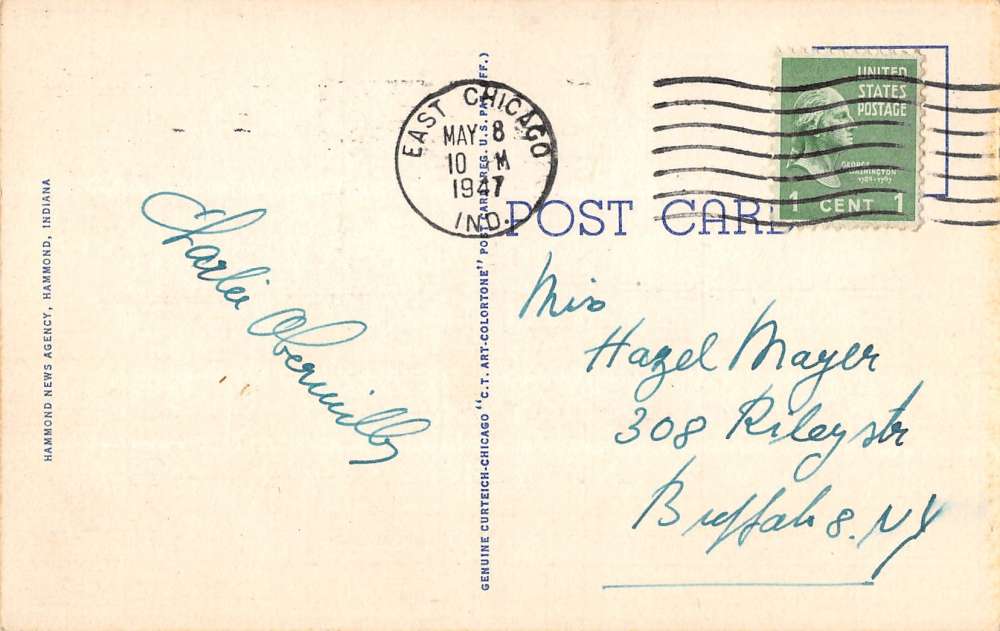 HAMMOND NEWS AGENCY, HAMMOND, INDIANA
Charlie
GENUINE CURTEICH-CHICAGO "C.T. ART-COLORTONE" POST CARD REG. U.S. PAT. OFF.)
EAST CHICAGO
MAY 8
10 M
1947
IND.
UNITED
STATES
POSTAGE
GEORGE
WASHINGTON
1 CENT 1
POST CARD
Miss
Hazel Mayer
308 Riley str
Buffalo 8. NY